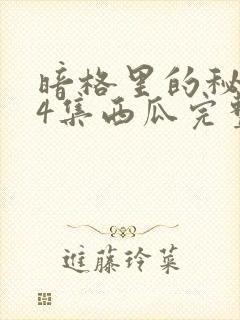 暗格里的秘
4集西瓜完整
進藤玲菜